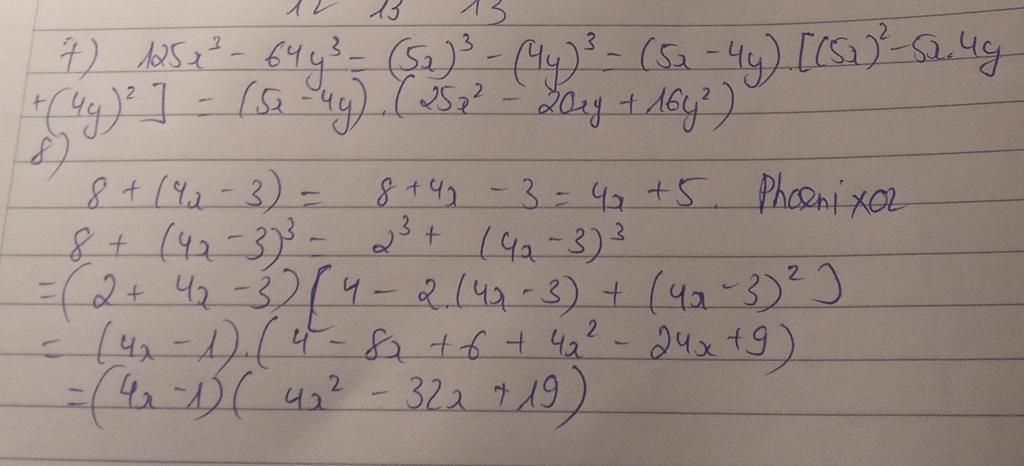 12 13 13
7) 125x³ - 64y³ = (5x)³ - (4y)³ = (5x - 4y).[(5x)² - 5x.4y
+ (4y)²] = (5x - 4y).(25x² - 20xy + 16y²)
8)
8 + (4x - 3) = 8 + 4x - 3 = 4x + 5. Phoenixoz
8 + (4x - 3)³ = 2³ + (4x - 3)³
= (2 + 4x - 3)[4 - 2.(4x - 3) + (4x - 3)²]
= (4x - 1).(4 - 8x + 6 + 4x² - 24x + 9)
= (4x - 1)(4x² - 32x + 19)